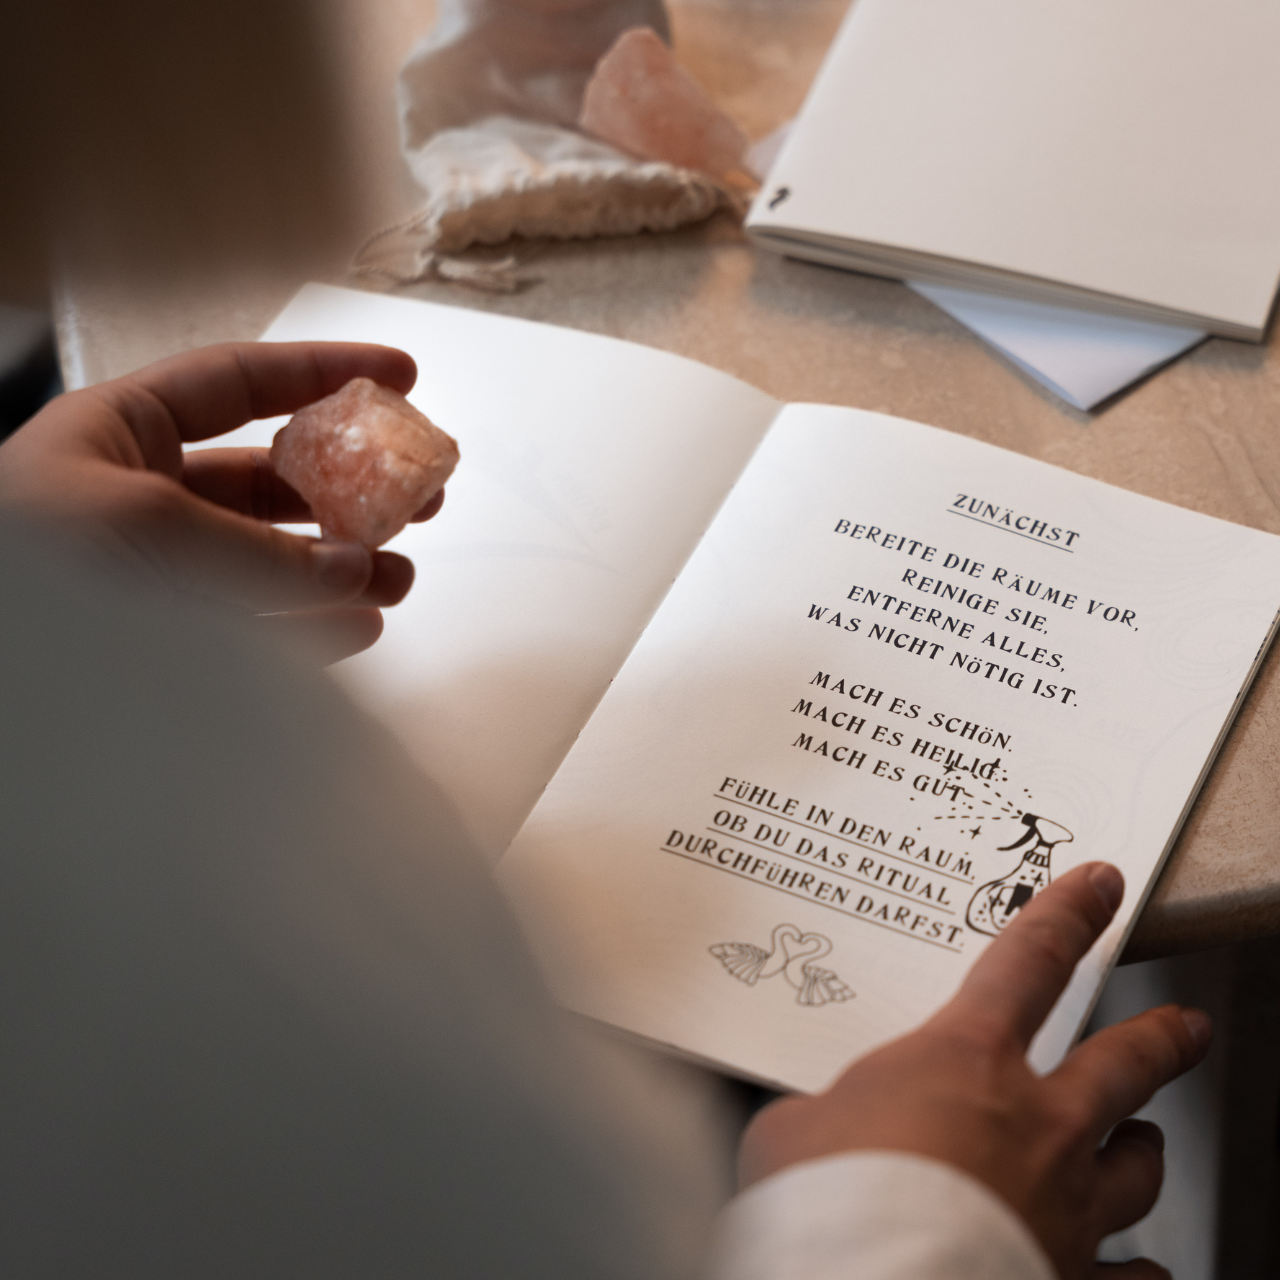 ZUNÄCHST
BEREITE DIE RÄUME VOR,
REINIGE SIE,
ENTFERNE ALLES,
WAS NICHT NÖTIG IST.
MACH ES SCHÖN.
MACH ES HEILIG.
MACH ES GUT.
FÜHLE IN DEN RAUM,
OB DU DAS RITUAL
DURCHFÜHREN DARFST.